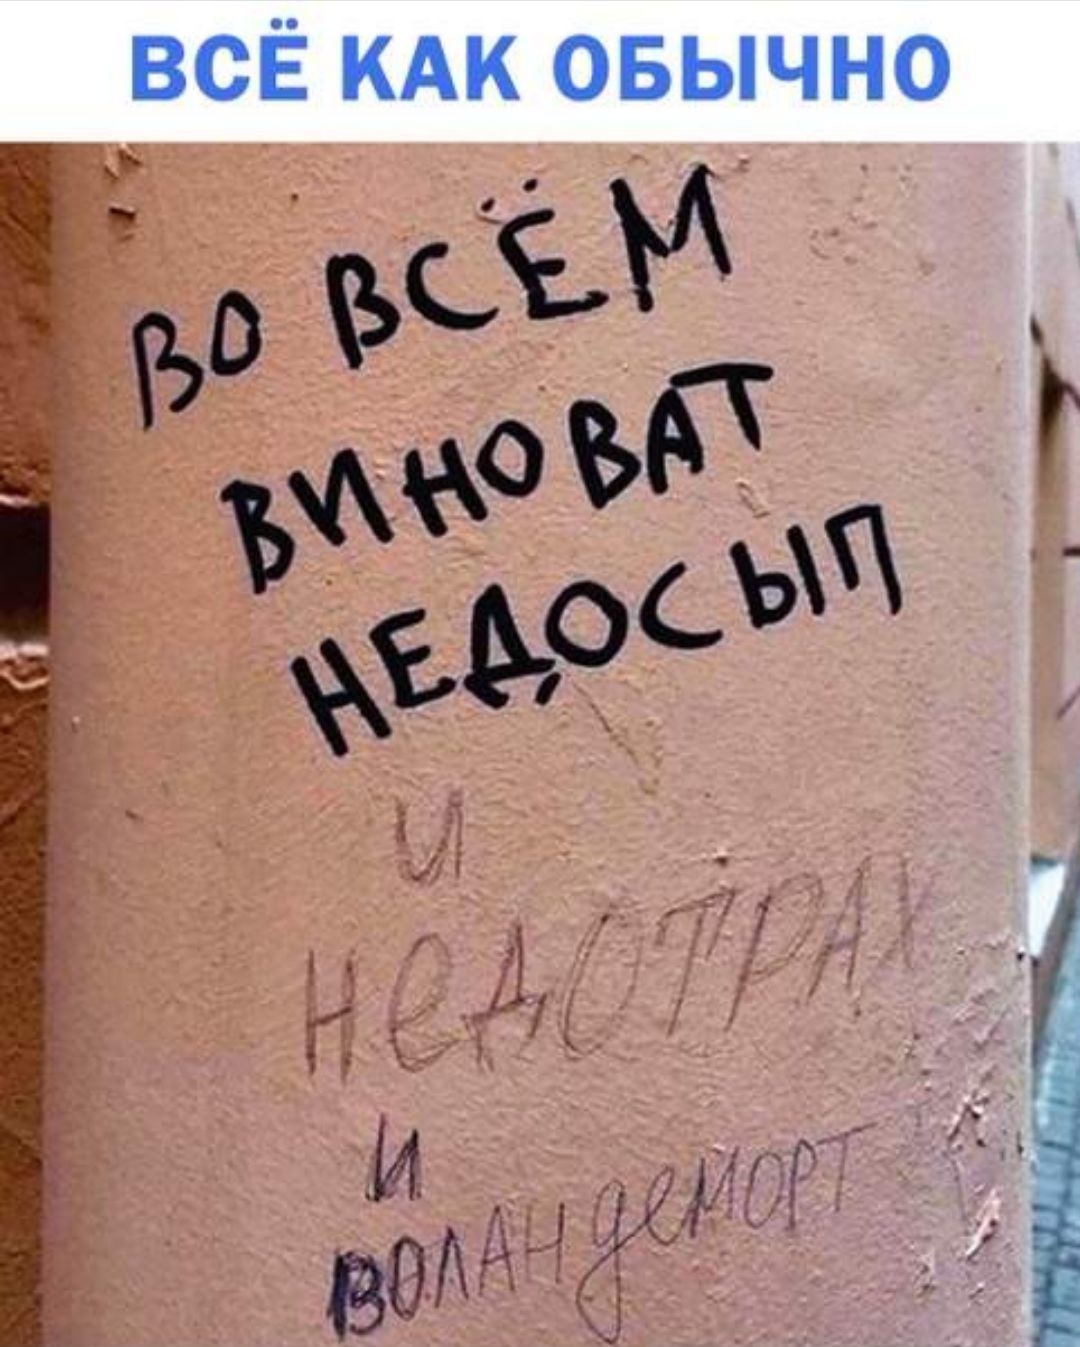 ВСЁ КАК ОБЫЧНО
ВО ВСЁМ
ВИНОВАТ
НЕДОСЫП
И
НЕДОТРАХ
И
ВОЛАНДЕМОРТ